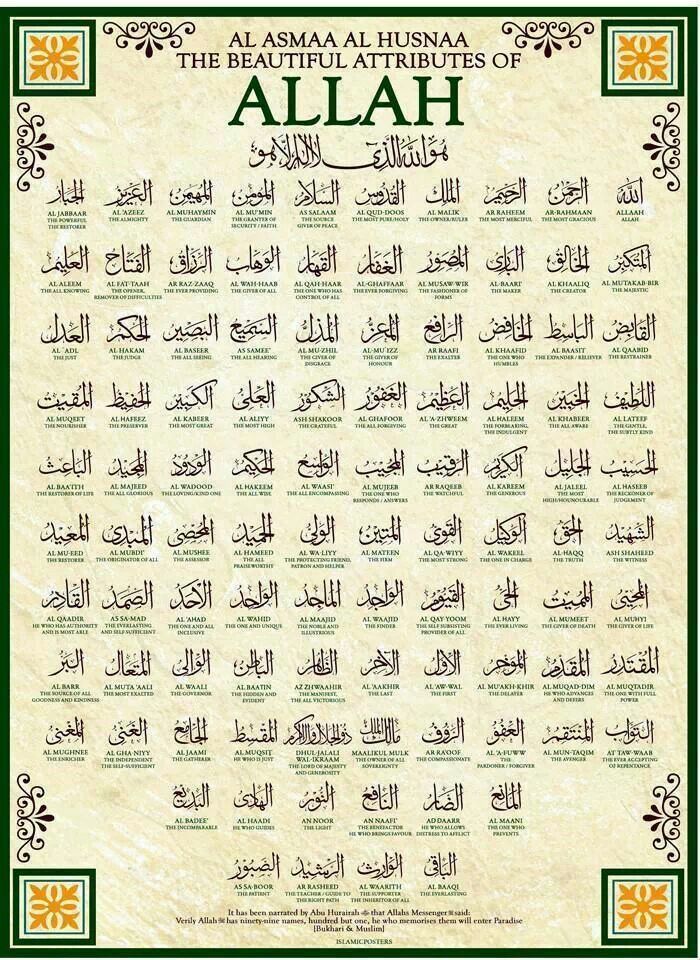 AL ASMAA AL HUSNAA
THE BEAUTIFUL ATTRIBUTES OF
ALLAH
هو الله الذي لا إله إلا هو
الله الرحمن الرحيم الملك القدوس السلام المؤمن المهيمن العزيز الجبار
AL JABBAAR AL 'AZEEZ AL MUHAYMIN AL MU'MIN AS SALAAM AL QUD-DOOS AL MALIK AR RAHEEM AR-RAHMAAN ALLAAH
THE POWERFUL THE ALMIGHTY THE GUARDIAN THE GRANTER OF THE SOURCE THE MOST PURE/HOLY THE OWNER/RULER THE MOST MERCIFUL THE MOST GRACIOUS ALLAH
THE RESTORER SECURITY / FAITH GIVER OF PEACE
المتكبر الخالق البارئ المصور الغفار القهار الوهاب الرزاق الفتاح العليم
AL ALEEM AL FAT-TAAH AR RAZ-ZAAQ AL WAH-HAAB AL QAH-HAAR AL-GHAFFAAR AL MUSAW-WIR AL-BAARI' AL KHAALIQ AL MUTAKAB-BIR
THE ALL KNOWING THE OPENER, THE EVER PROVIDING THE GIVER OF ALL THE ONE WHO HAS THE EVER FORGIVING THE FASHIONER OF THE MAKER THE CREATOR THE MAJESTIC
REMOVER OF DIFFICULTIES CONTROL OF ALL FORMS
القابض الباسط الخافض الرافع المعز المذل السميع البصير الحكم العدل
AL 'ADL AL HAKAM AL BASEER AS SAMEE' AL MU-ZHIL AL-MU'IZZ AR RAAFI AL KHAAFID AL BAASIT AL QAABID
THE JUST THE JUDGE THE ALL SEEING THE ALL HEARING THE GIVER OF THE GIVER OF THE EXALTER THE ONE WHO THE EXPANDER / RELIEVER THE RESTRAINER
DISGRACE HONOUR HUMBLES
اللطيف الخبير الحليم العظيم الغفور الشكور العلي الكبير الحفيظ المقيت
AL MUQEET AL HAFEEZ AL KABEER AL ALIYY ASH SHAKOOR AL GHAFOOR AL 'A-ZHWEEM AL HALEEM AL KHABEER AL LATEEF
THE NOURISHER THE PRESERVER THE MOST GREAT THE MOST HIGH THE GRATEFUL THE ALL FORGIVING THE GREAT THE FORBEARING, THE ALL AWARE THE GENTLE,
THE INDULGENT THE SUBTLY KIND
الحسيب الجليل الكريم الرقيب المجيب الواسع الحكيم الودود المجيد الباعث
AL BAA'ITH AL MAJEED AL WADOOD AL HAKEEM AL WAASI' AL MUJEEB AR RAQEEB AL KAREEM AL JALEEL AL HASEEB
THE RESTORER OF LIFE THE ALL GLORIOUS THE LOVING/KIND ONE THE ALL WISE THE ALL ENCOMPASSING THE ONE WHO THE WATCHFUL THE GENEROUS THE MOST THE RECKONER OF
RESPONDS / ANSWERS HIGH/HOUNOURABLE JUDGEMENT
الشهيد الحق الوكيل القوي المتين الولي الحميد المحصي المبدئ المعيد
AL MU-EED AL MUBDI' AL MUSHEE AL HAMEED AL WA-LIYY AL MATEEN AL QA-WIYY AL WAKEEL AL-HAQQ ASH SHAHEED
THE RESTORER THE ORIGINATOR OF ALL THE ASSESSOR THE ALL THE PROTECTING FRIEND, THE FIRM THE MOST STRONG THE ONE IN CHARGE THE TRUTH THE WITNESS
PRAISEWORTHY PATRON AND HELPER
المحيي المميت الحي القيوم الواجد الماجد الواحد الأحد الصمد القادر
AL QAADIR AS SA-MAD AL 'AHAD AL WAHID AL MAAJID AL WAAJID AL QAY YOOM AL HAYY AL MUMEET AL MUHYI
HE WHO HAS AUTHORITY THE EVERLASTING THE ONE AND ALL THE ONE AND UNIQUE THE NOBLE AND THE FINDER THE SELF SUBSISTING THE EVER LIVING THE GIVER OF DEATH THE GIVER OF LIFE
AND IS MOST ABLE AND SELF SUFFICIENT INCLUSIVE ILLUSTRIOUS PROVIDER OF ALL
المقتدر المقدم المؤخر الأول الآخر الظاهر الباطن الوالي المتعال البر
AL BARR AL MUTA 'AALI AL WAALI AL BAATIN AZ ZHWAAHIR AL 'AAKHIR AL 'AW-WAL AL MU'AKH-KHIR AL MUQAD-DIM AL MUQTADIR
THE SOURCE OF ALL THE MOST EXALTED THE GOVERNOR THE HIDDEN AND THE MANIFEST, THE LAST THE FIRST THE DELAYER HE WHO ADVANCES THE ONE WITH FULL
GOODNESS AND KINDNESS EVIDENT THE ALL VICTORIOUS AND DEFERS POWER
التواب المنتقم العفو الرؤوف مالك الملك ذو الجلال والإكرام المقسط الجامع الغني المغني
AL MUGHNEE AL GHA-NIYY AL JAAMI AL MUQSIT DHUL-JALALI MAALIKUL MULK AR RA'OOF AL 'A-FUWW AL MUN-TAQIM AT TAW-WAAB
THE ENRICHER THE INDEPENDENT THE GATHERER HE WHO IS JUST WAL-IKRAAM THE OWNER OF ALL THE COMPASSIONATE THE THE AVENGER THE EVER ACCEPTING
THE SELF-SUFFICIENT THE LORD OF MAJESTY SOVEREIGNTY PARDONER / FORGIVER OF REPENTANCE
AND GENEROSITY
المانع الضار النافع النور الهادي البديع
AL BADEE' AL HAADI AN NOOR AN NAAFI' AD DAARR AL MAANI
THE INCOMPARABLE HE WHO GUIDES THE LIGHT THE BENEFACTOR HE WHO ALLOWS THE ONE WHO
HE WHO BRINGS FAVOUR DISTRESS TO AFFLICT PREVENTS
الباقي الوارث الرشيد الصبور
AS SA-BOOR AR RASHEED AL WAARITH AL BAAQI
THE PATIENT THE TEACHER / GUIDE TO THE SUPPORTER THE EVERLASTING
THE RIGHT PATH THE INHERITOR OF ALL
It has been narrated by Abu Hurairah that Allahs Messenger ﷺ said:
Verily Allah has ninety-nine names, hundred but one, he who memorises them will enter Paradise
[Bukhari & Muslim]
ISLAMICPOSTERS